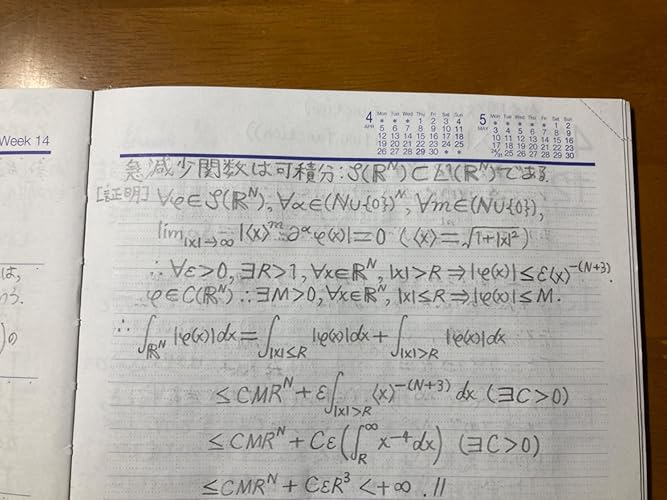 Week 14
4 APR Mon Tue Wed Thu Fri Sat Sun
* * * 1 2 3 4
5 6 7 8 9 10 11
12 13 14 15 16 17 18
19 20 21 22 23 24 25
26 27 28 29 30 * *
5 MAY Mon Tue Wed Thu Fri Sat Sun
* * * * * 1 2
3 4 5 6 7 8 9
10 11 12 13 14 15 16
17 18 19 20 21 22 23
24/31 25 26 27 28 29 30
急減少関数は可積分:𝒮(ℝᴺ)⊂L¹(ℝᴺ)である.
[証明] ∀φ∈𝒮(ℝᴺ), ∀α∈(ℕ∪{0})ᴺ, ∀m∈(ℕ∪{0}),
lim|x|→∞ |⟨x⟩ᵐ ∂^α φ(x)|=0 (⟨x⟩=√(1+|x|²))
∴ ∀ε>0, ∃R>1, ∀x∈ℝᴺ, |x|>R ⇒ |φ(x)|≤ε⟨x⟩^-(N+3).
φ∈C(ℝᴺ) ∴ ∃M>0, ∀x∈ℝᴺ, |x|≤R ⇒ |φ(x)|≤M.
∴ ∫_ℝᴺ |φ(x)|dx = ∫_|x|≤R |φ(x)|dx + ∫_|x|>R |φ(x)|dx
≤ CMRᴺ + ε∫_|x|>R ⟨x⟩^-(N+3) dx (∃C>0)
≤ CMRᴺ + Cε(∫_R^∞ x^-4 dx) (∃C>0)
≤ CMRᴺ + CεR³ < +∞ . //
は,
う.
)の